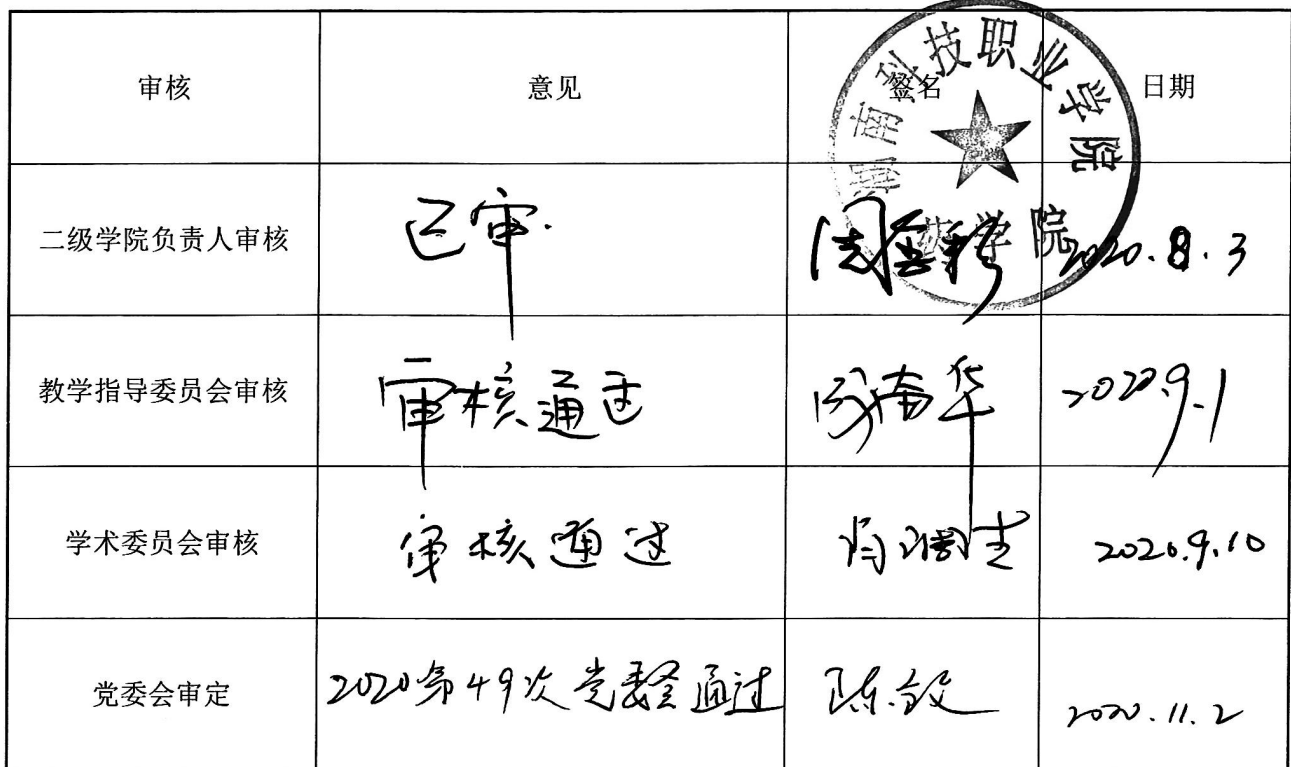 审核 意见 签名 日期
湖南科技职业学院
药学院
二级学院负责人审核 已审. 2020.8.3
教学指导委员会审核 审核通过 2020.9.1
学术委员会审核 审核通过 2020.9.10
党委会审定 2020第49次党委会通过 陈毅 2020.11.2